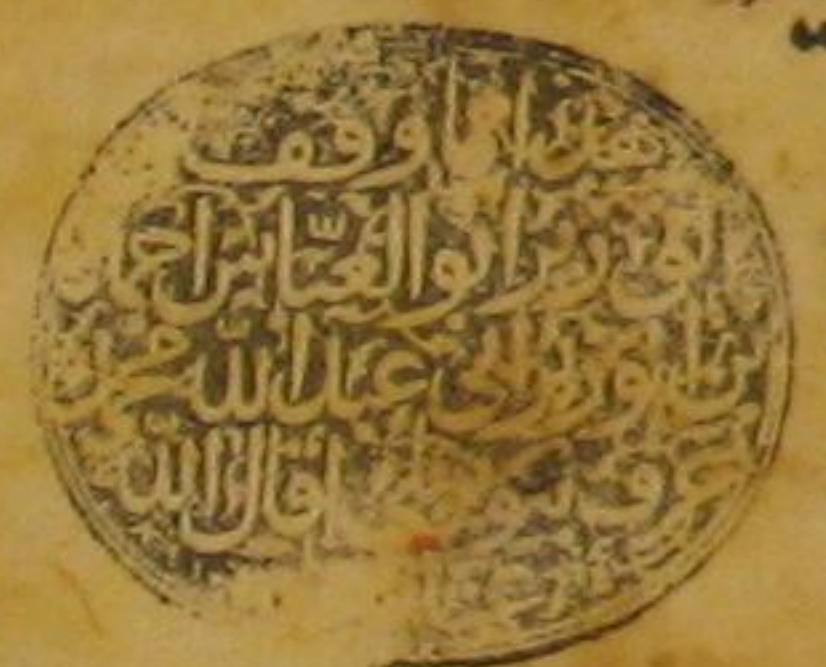 هذا ما وقف
الوزير ابو العباس احمد
بن الوزير ابي عبد الله محمد
عرف اقال الله